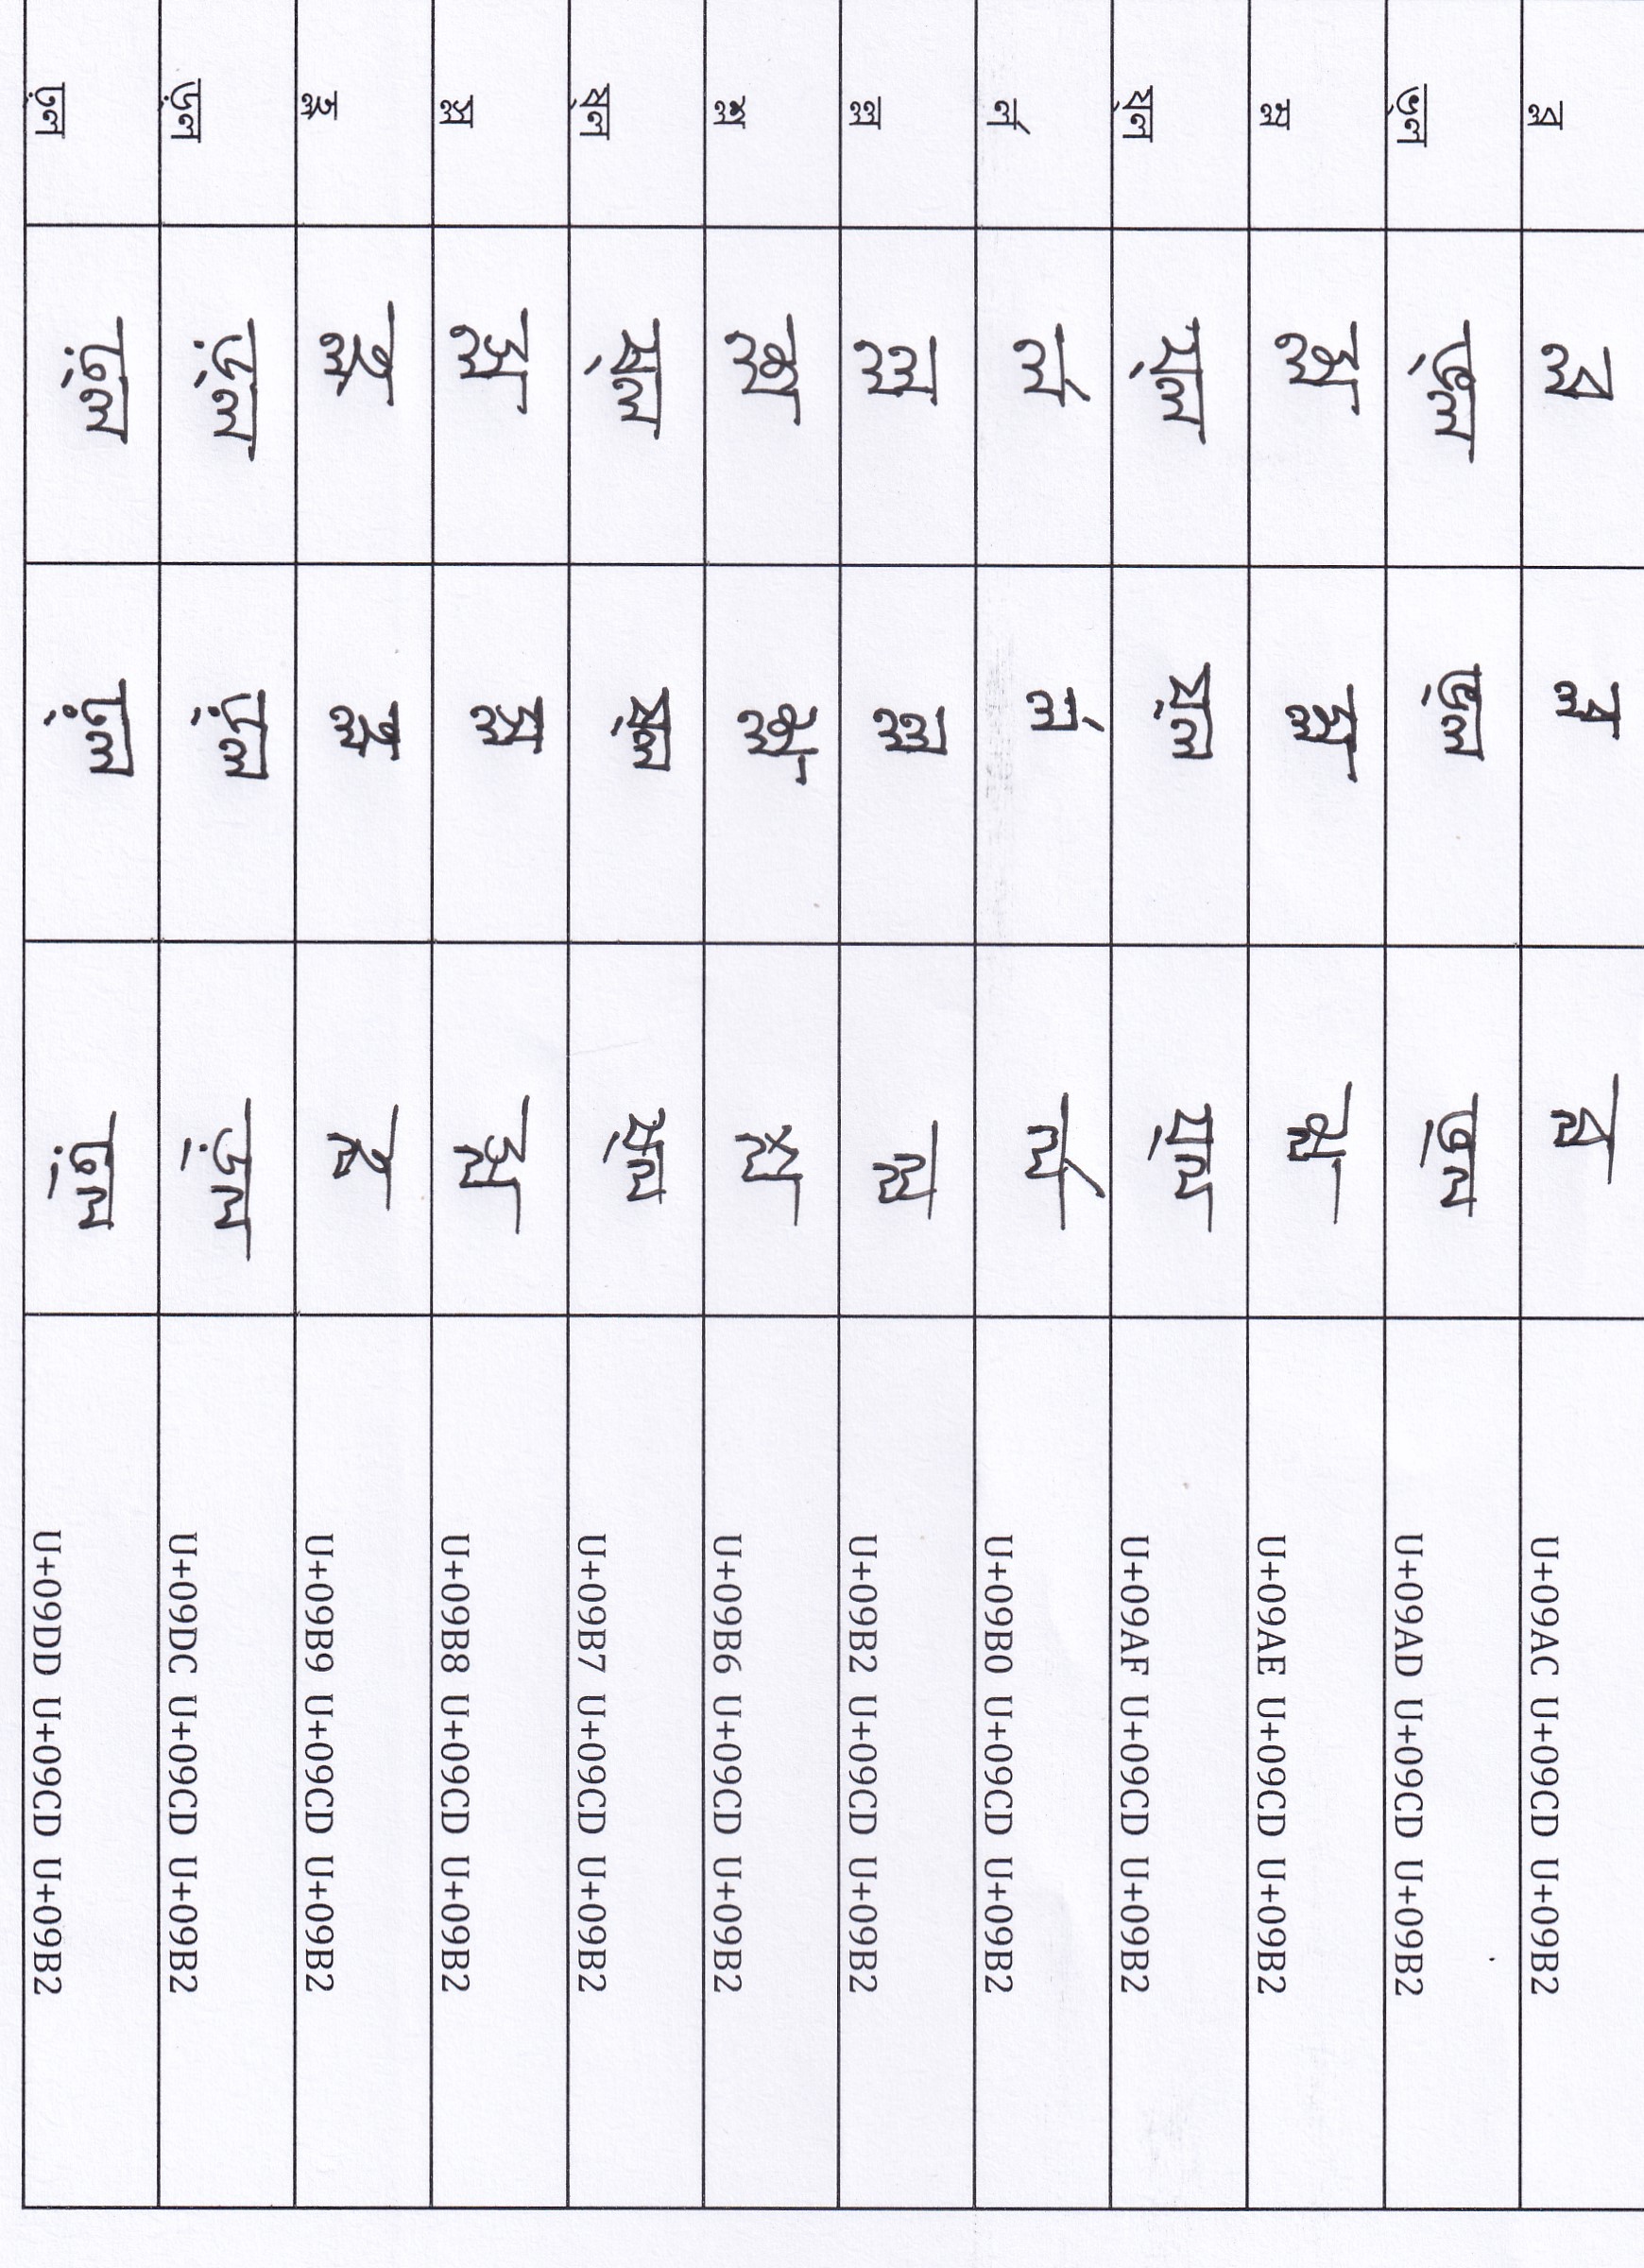 ব্ল ব্ল ব্ল ব্ল U+09AC U+09CD U+09B2
ভ্ল ভ্ল ভ্ল ভ্ল U+09AD U+09CD U+09B2
ম্ল ম্ল ম্ল ম্ল U+09AE U+09CD U+09B2
য্ল য্ল য্ল য্ল U+09AF U+09CD U+09B2
র্ল র্ল র্ল র্ল U+09B0 U+09CD U+09B2
ল্ল ল্ল ল্ল ল্ল U+09B2 U+09CD U+09B2
শ্ল শ্ল শ্ল শ্ল U+09B6 U+09CD U+09B2
ষ্ল ষ্ল ষ্ল ষ্ল U+09B7 U+09CD U+09B2
স্ল স্ল স্ল স্ল U+09B8 U+09CD U+09B2
হ্ল হ্ল হ্ল হ্ল U+09B9 U+09CD U+09B2
ড়্ল ড়্ল ড়্ল ড়্ল U+09DC U+09CD U+09B2
ঢ়্ল ঢ়্ল ঢ়্ল ঢ়্ল U+09DD U+09CD U+09B2